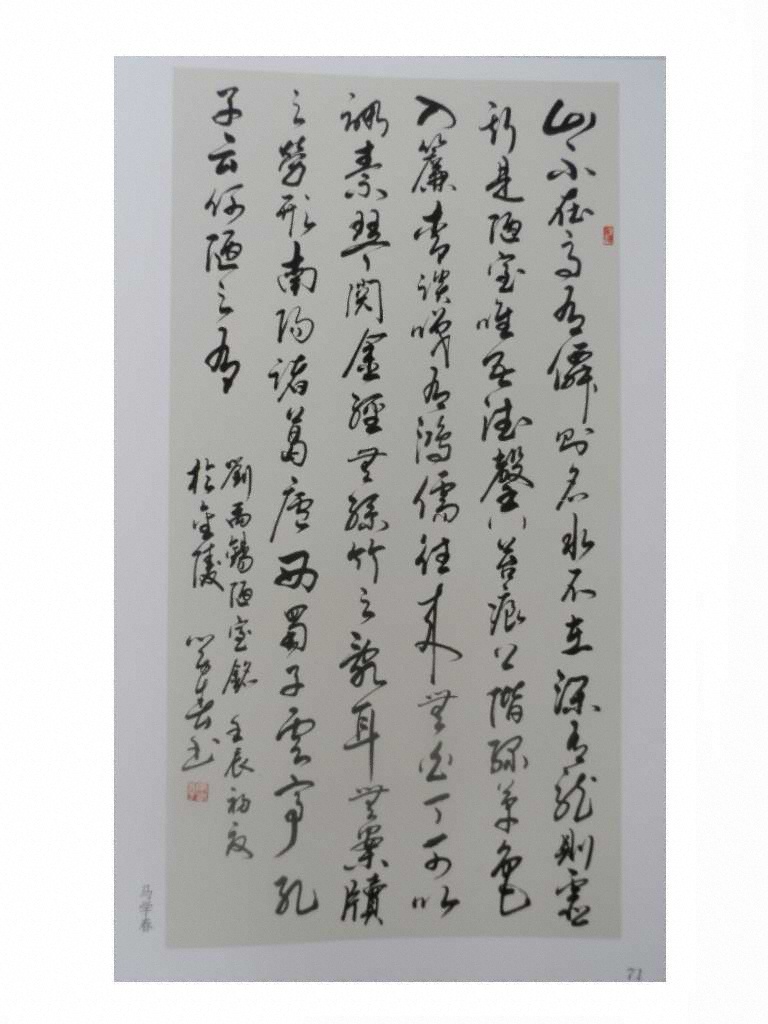 山不在高有僊則名水不在深有龍則靈
斯是陋室唯吾德馨苔痕上階綠草色
入簾青談笑有鴻儒往來無白丁可以
調素琴閱金經無絲竹之亂耳無案牘
之勞形南陽諸葛廬西蜀子雲亭孔
子云何陋之有
劉禹錫陋室銘 壬辰初夏
於金陵 學春书
马学春
71